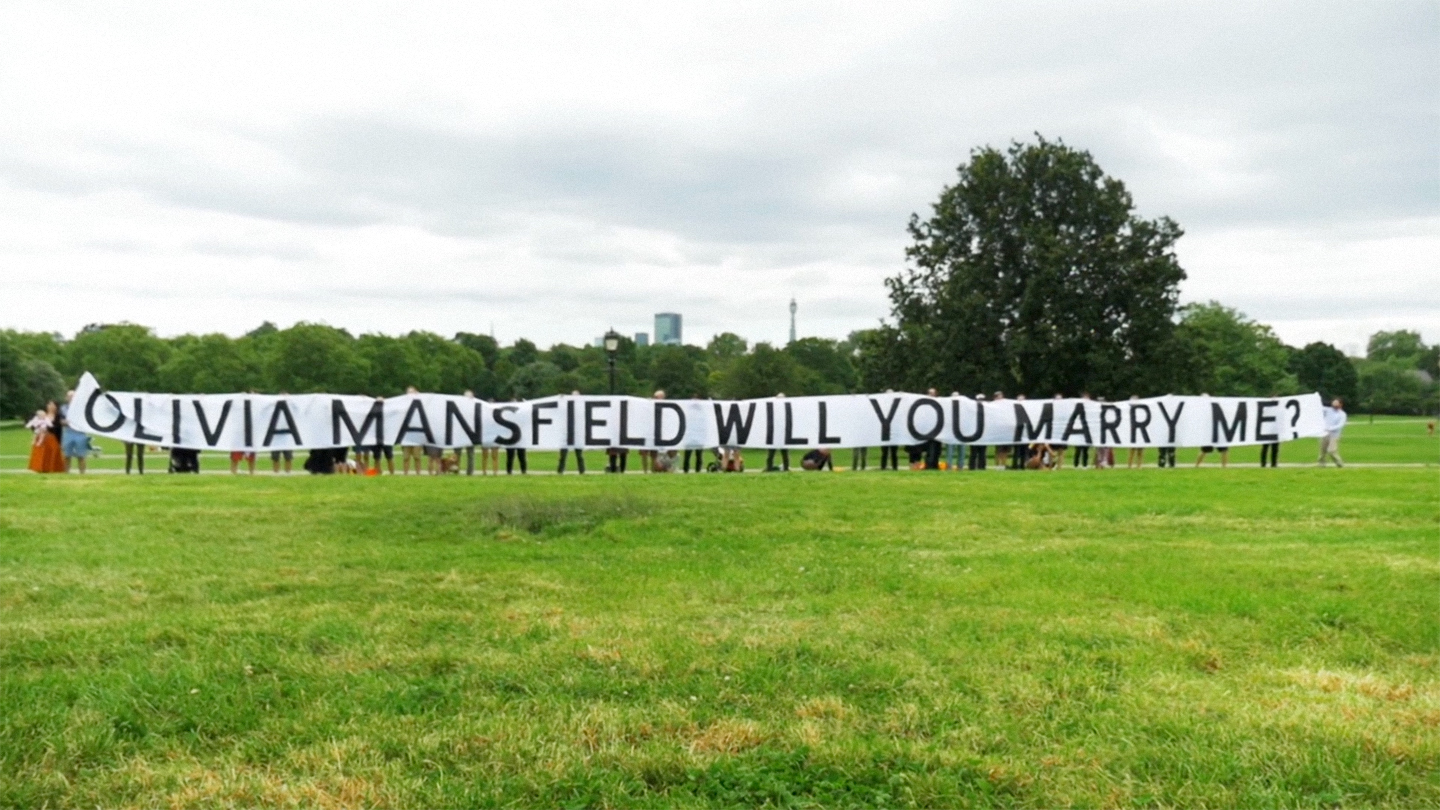 OLIVIA MANSFIELD WILL YOU MARRY ME?